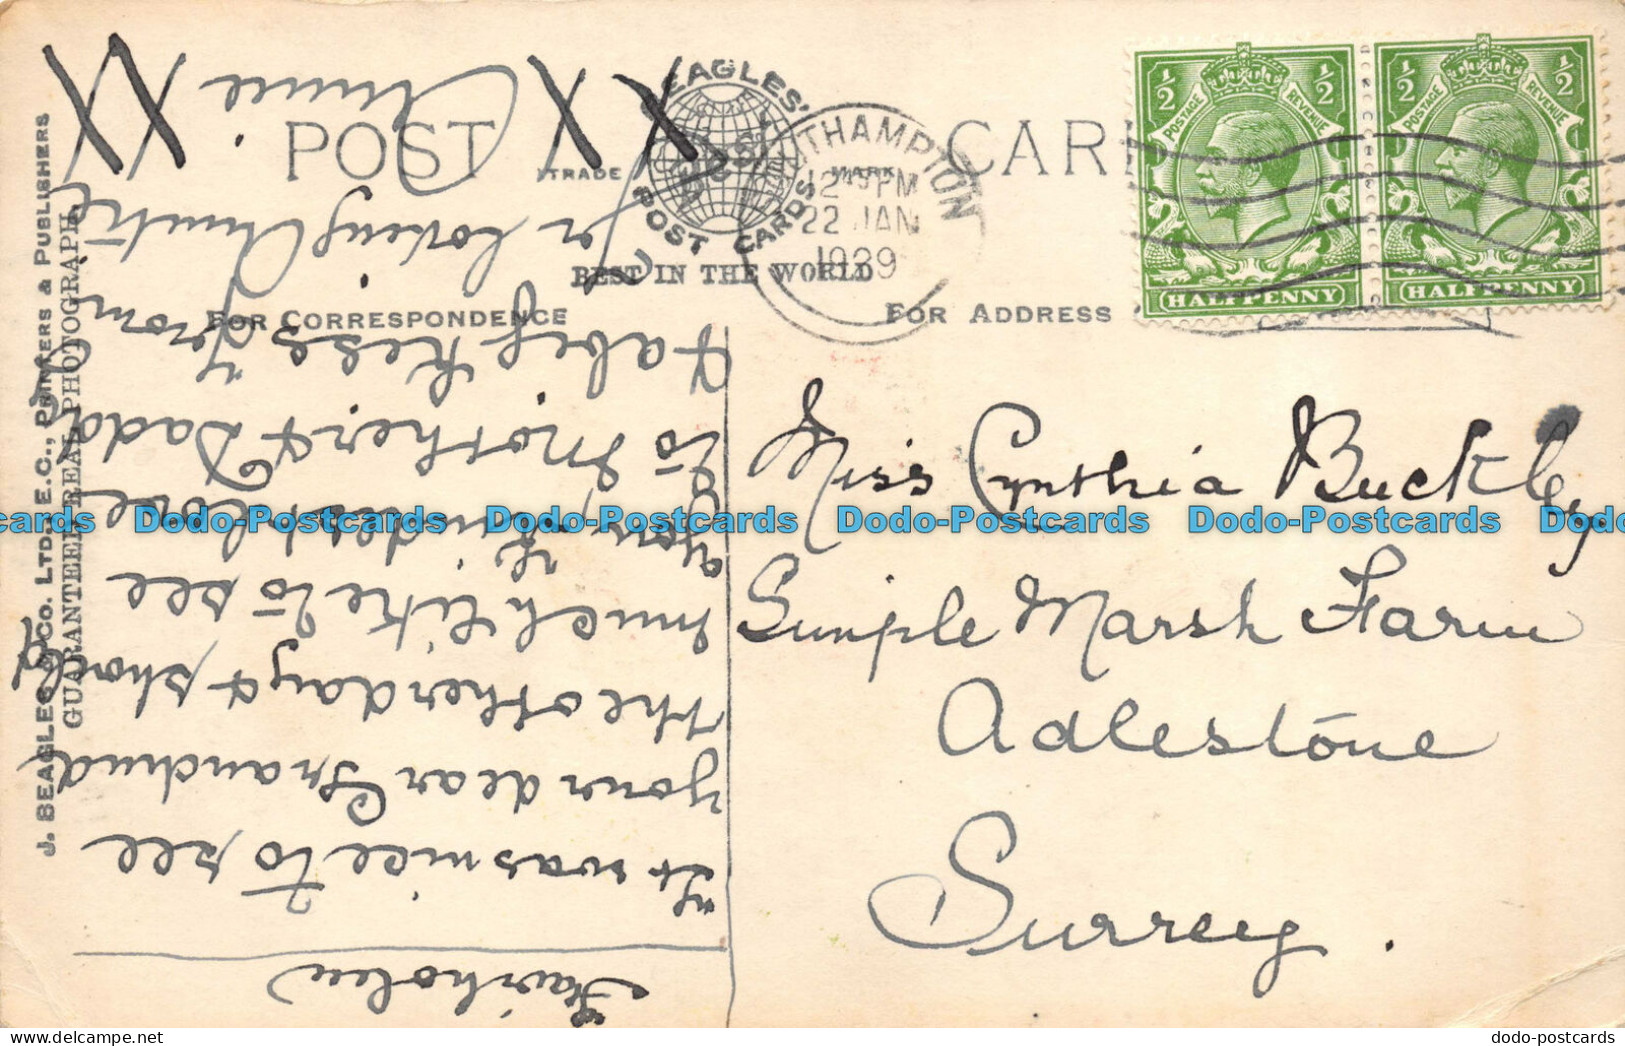 POST CARD
TRADE MARK
BEAGLES' POST CARDS
BEST IN THE WORLD
FOR CORRESPONDENCE
FOR ADDRESS
J. BEAGLES & Co. LTD., E.C., PRINTERS & PUBLISHERS
GUARANTEED REAL PHOTOGRAPH.
POSTAGE REVENUE
½ ½
HALFPENNY
POSTAGE REVENUE
½ ½
HALFPENNY
SOUTHAMPTON
12 45 PM
22 JAN
1939
Miss Cynthia Buckley
Marsh Farm
Adlestone
Surrey.
Fairholm
It was nice to see
your dear Grandad
the other day & should
much like to see
you, kindest love
to Mother & Daddy
& a big kiss from
yr loving Auntie
Annie
XX XX
Dodo-Postcards Dodo-Postcards Dodo-Postcards Dodo-Postcards Dodo-Postcards
dodo-postcards